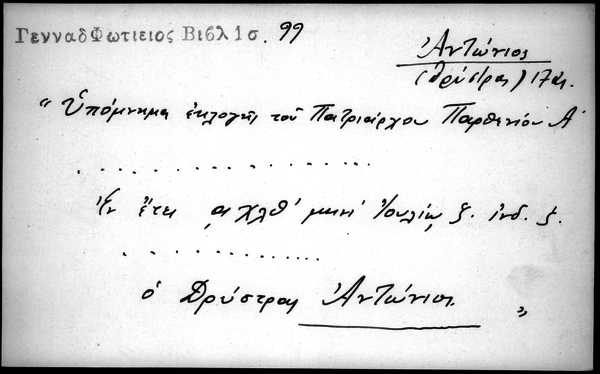 ΓενναδΦωτιειος Βιβλ 1σ. 99
Ἀντώνιος
(Δρύστρας) 17
"Ὑπόμνημα ἐκλογῆς τοῦ Πατριάρχου Παρθενίου Α'
. . . . . . . . . . . . . . . . . .
Ἐν ἔτει ͵αχλθ' μηνὶ Ἰουλίῳ ξ. ἰνδ. ξ.
. . . . . . . . . . . . .
ὁ Δρύστρας Ἀντώνιος "